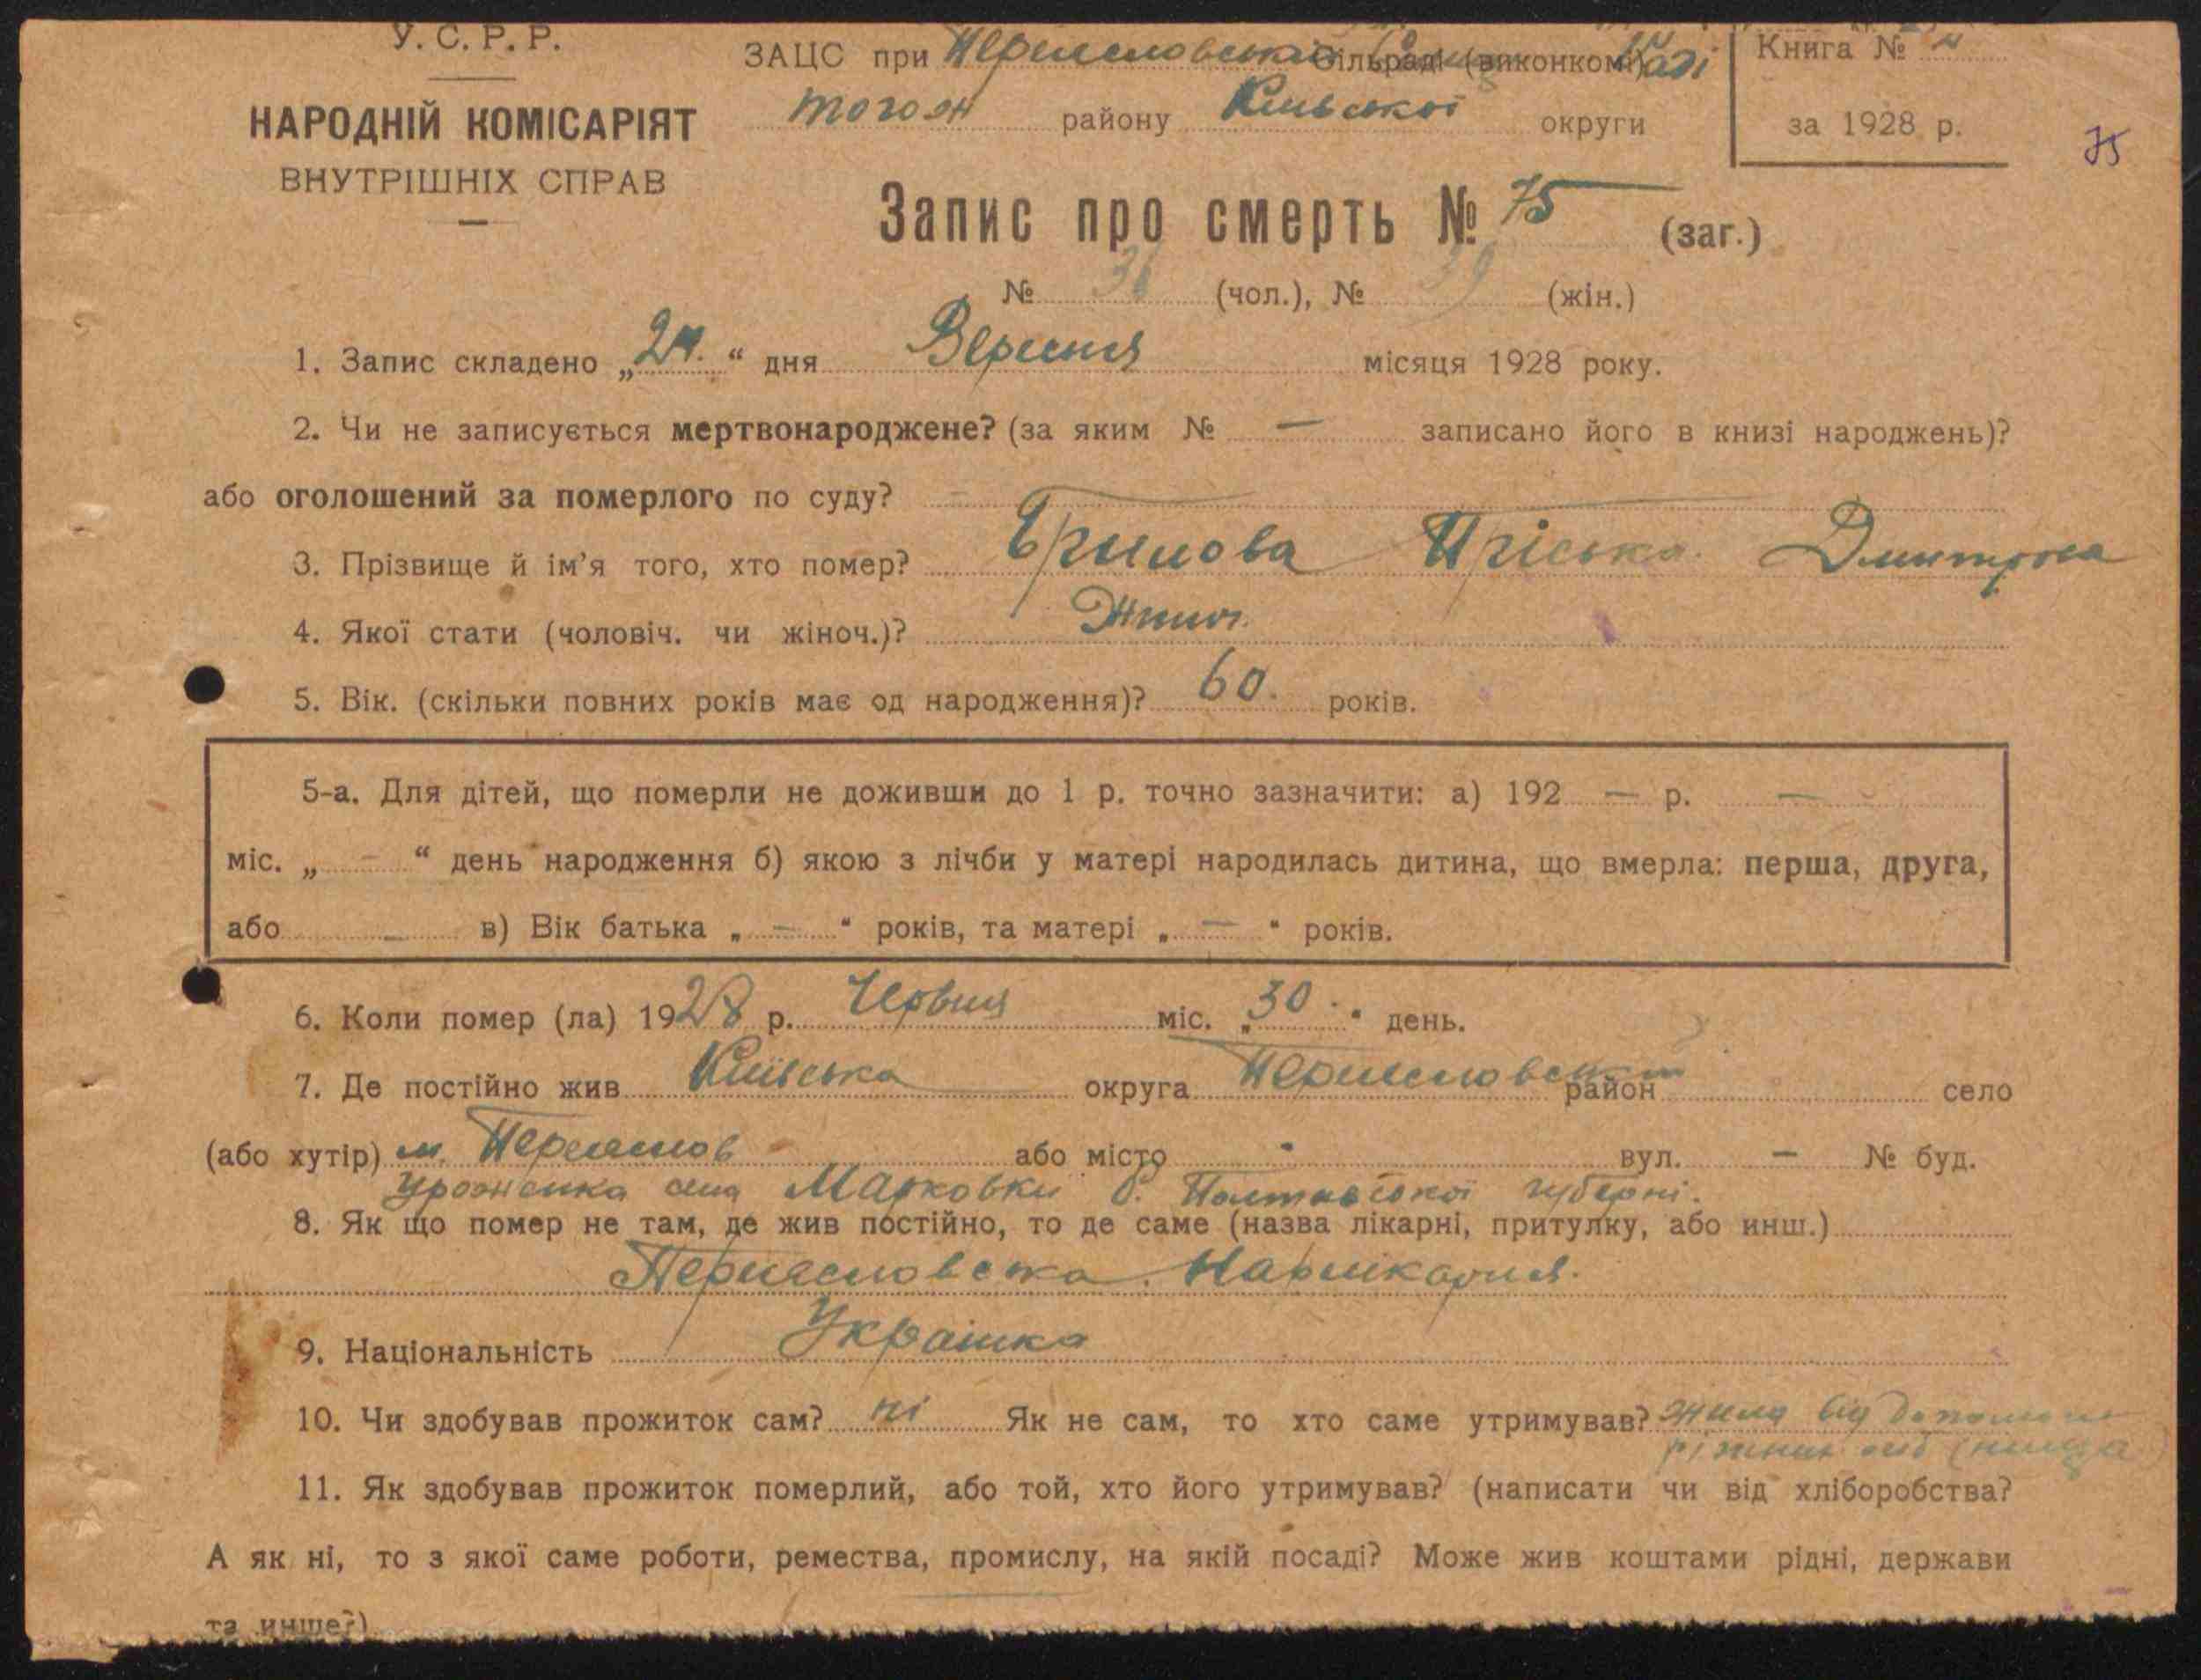 У. С. Р. Р.
НАРОДНІЙ КОМІСАРІЯТ
ВНУТРІШНІХ СПРАВ
ЗАЦС при сільраді (виконкомі)
того ж району Київської округи
Книга №
за 1928 р.
75
Запис про смерть № 75 (заг.)
№ 36 (чол.), № 39 (жін.)
1. Запис складено „24.“ дня Вересня місяця 1928 року.
2. Чи не записується мертвонароджене? (за яким № — записано його в книзі народжень)?
або оголошений за померлого по суду? —
3. Прізвище й ім’я того, хто помер? Пріська
4. Якої стати (чоловіч. чи жіноч.)? Жіноч.
5. Вік. (скільки повних років має од народження)? 60. років.
5-а. Для дітей, що померли не доживши до 1 р. точно зазначити: а) 192 — р. —
міс. „ — “ день народження б) якою з лічби у матері народилась дитина, що вмерла: перша, друга,
або — в) Вік батька „ — “ років, та матері „ — “ років.
6. Коли помер (ла) 1928 р. Червня міс. „30.“ день.
7. Де постійно жив Київська округа Переяславський район село
(або хутір) м. Переяслов або місто - вул. — № буд.
урожонка села Марковки б. Полтавської губерні.
8. Як що помер не там, де жив постійно, то де саме (назва лікарні, притулку, або инш.)
Переясловська Нарлікарня.
9. Національність Украінка
10. Чи здобував прожиток сам? ні Як не сам, то хто саме утримував? жила від допомоги
ріжних осіб (нища)
11. Як здобував прожиток померлий, або той, хто його утримував? (написати чи від хліборобства?
А як ні, то з якої саме роботи, ремества, промислу, на якій посаді? Може жив коштами рідні, держави
та инше?)